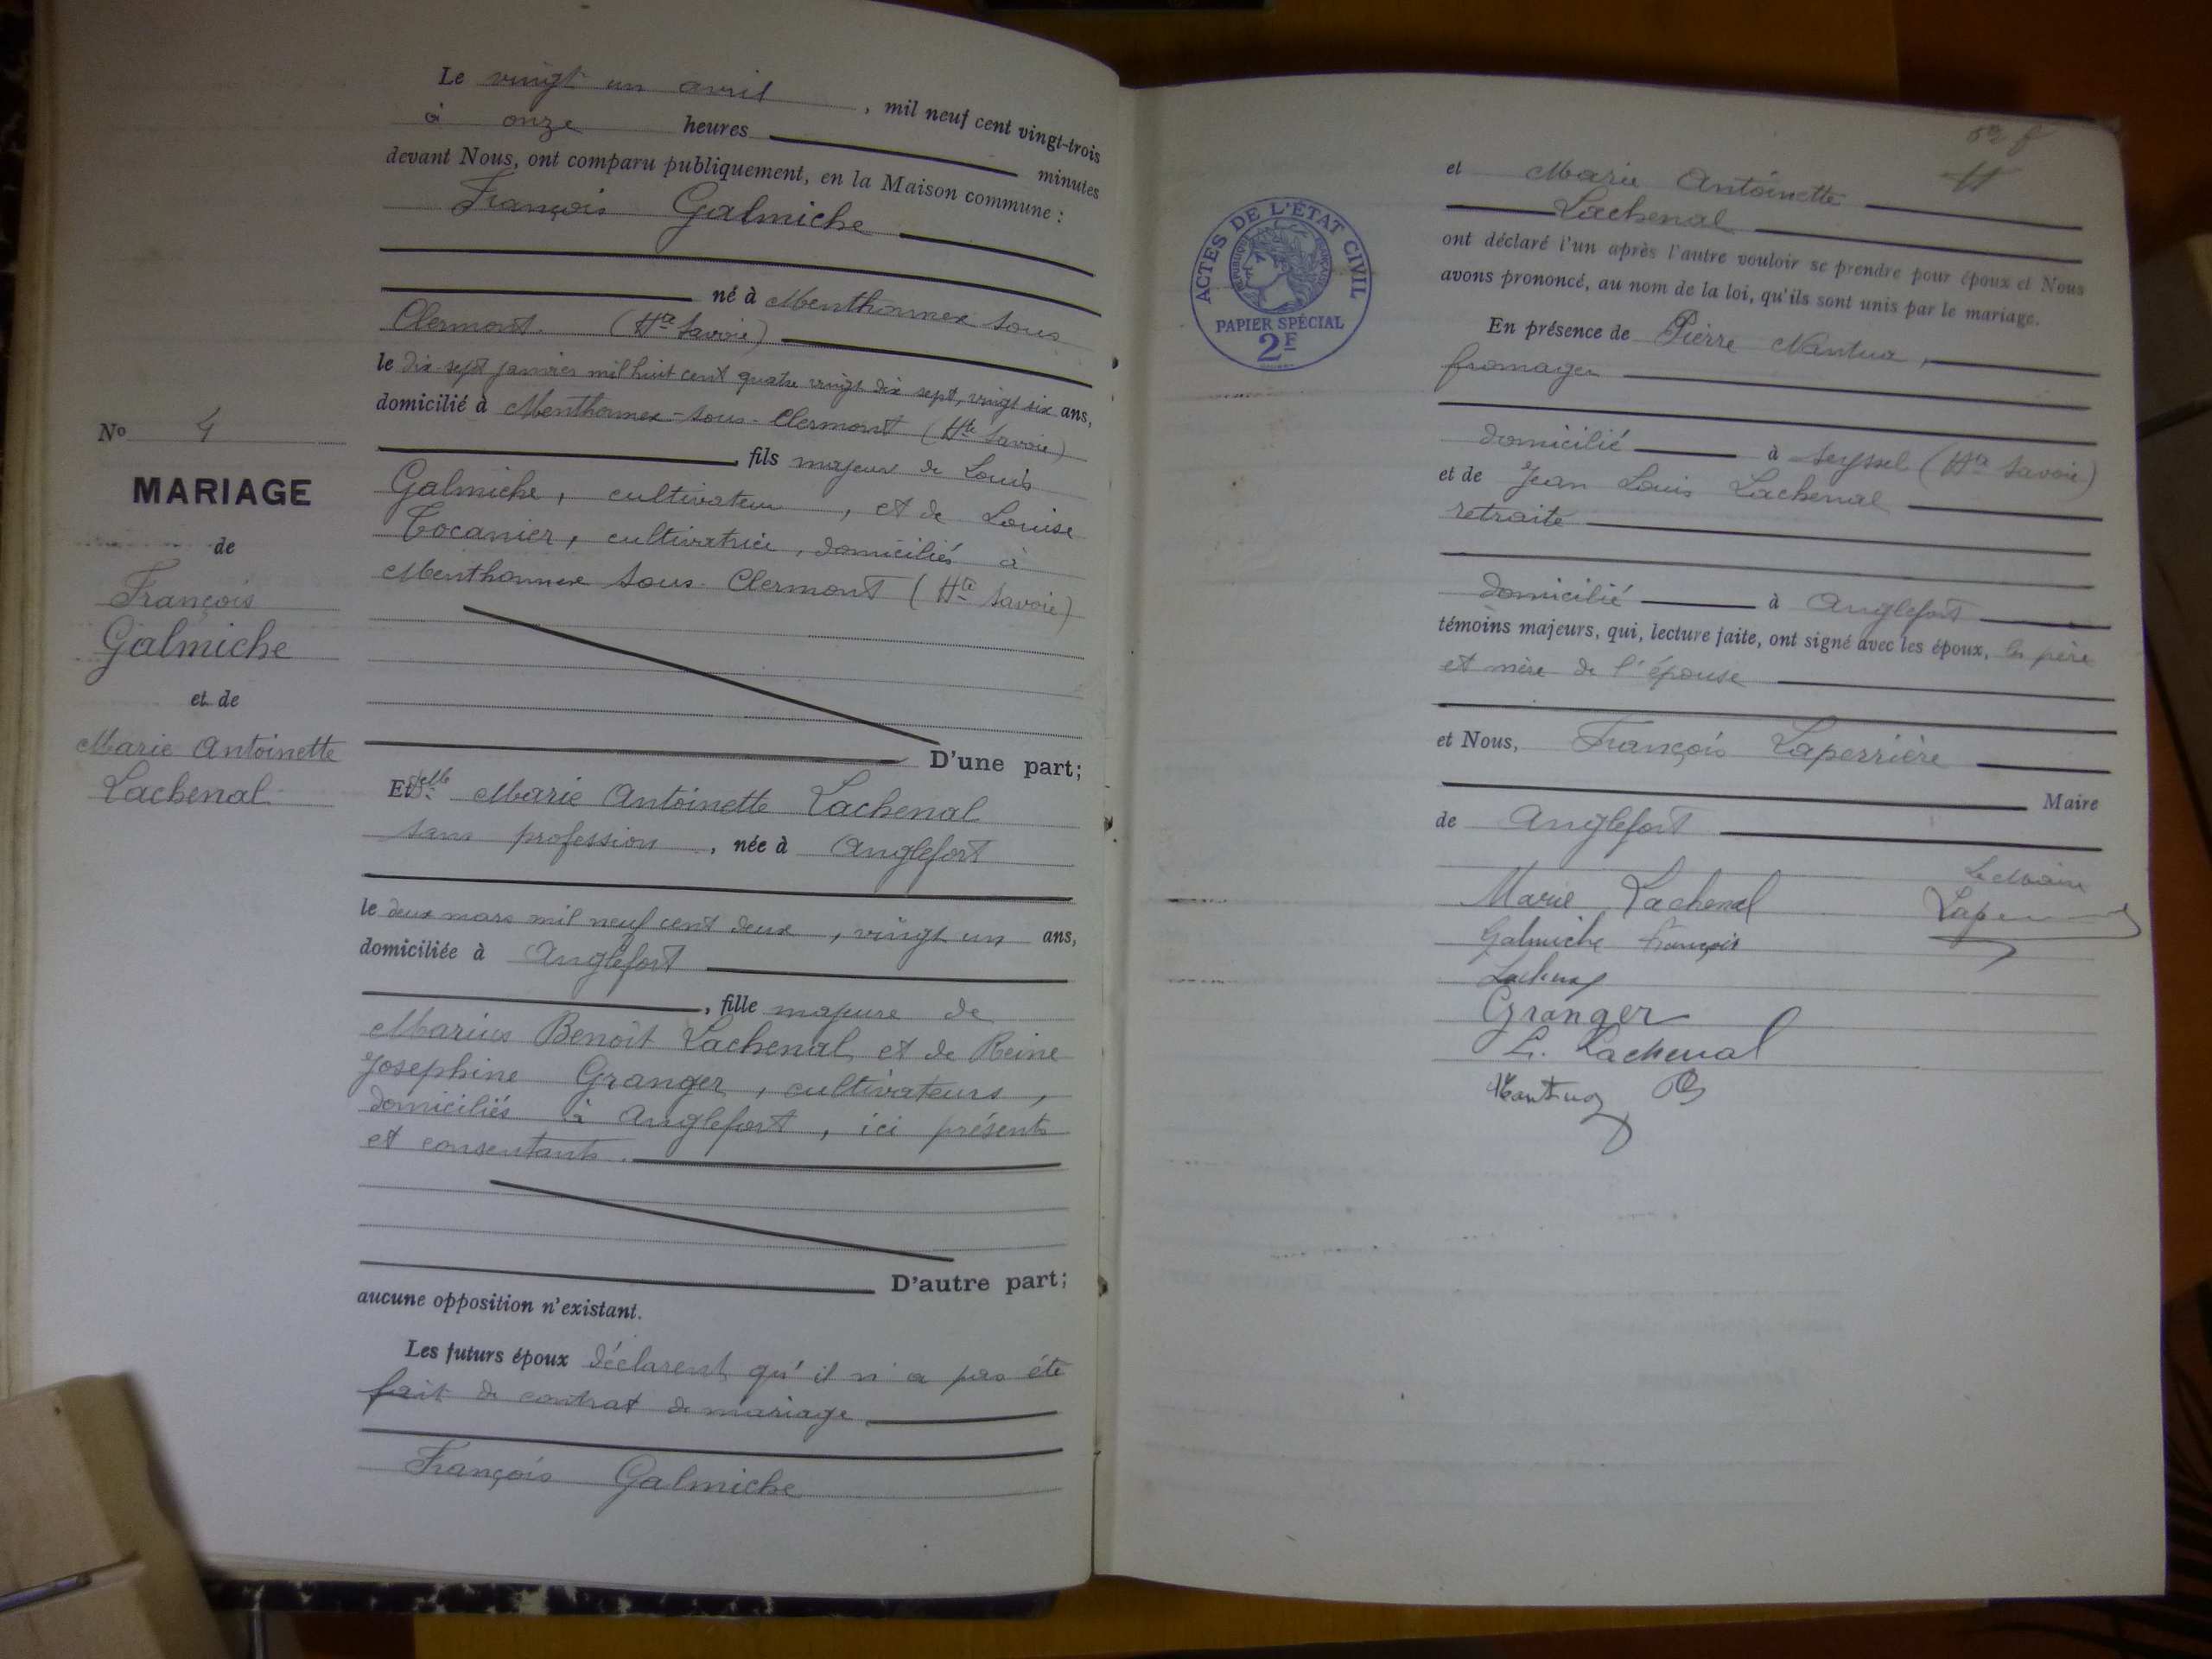 Le vingt un avril, mil neuf cent vingt-trois
à onze heures minutes
devant Nous, ont comparu publiquement, en la Maison commune :
François Galmiche
né à Menthonnex sous
Clermont (Hte Savoie)
le dix-sept janvier mil huit cent quatre vingt dix sept, vingt six ans,
domicilié à Menthonnex-sous-Clermont (Hte Savoie)
, fils majeur de Louis
Galmiche, cultivateur, et de Louise
Tocanier, cultivatrice, domiciliés à
Menthonnex sous-Clermont (Hte Savoie)
D'une part;
Et Delle Marie Antoinette Lachenal
sans profession, née à Anglefort
le deux mars mil neuf cent deux, vingt un ans,
domiciliée à Anglefort
, fille majeure de
Marius Benoît Lachenal et de Reine
Josephine Granger, cultivateurs,
domiciliés à Anglefort, ici présents
et consentants.
D'autre part;
aucune opposition n'existant.
Les futurs époux déclarent qu'il n'a pas été
fait de contrat de mariage.
François Galmiche
No 4
MARIAGE
de
François
Galmiche
et de
Marie Antoinette
Lachenal
et Marie Antoinette
Lachenal
ont déclaré l'un après l'autre vouloir se prendre pour époux et Nous
avons prononcé, au nom de la loi, qu'ils sont unis par le mariage.
En présence de Pierre Nantua,
fromager
domicilié à Seyssel (Hte Savoie)
et de Jean Louis Lachenal
retraité
domicilié à Anglefort
témoins majeurs, qui, lecture faite, ont signé avec les époux, les père
et mère de l'épouse
et Nous, François Laperrière
Maire
de Anglefort
Le Maire
Marie Lachenal
Galmiche François
Lachenal
Granger
L. Lachenal
Nantua
ACTES DE L'ÉTAT CIVIL
RÉPUBLIQUE FRANÇAISE
PAPIER SPÉCIAL
2F